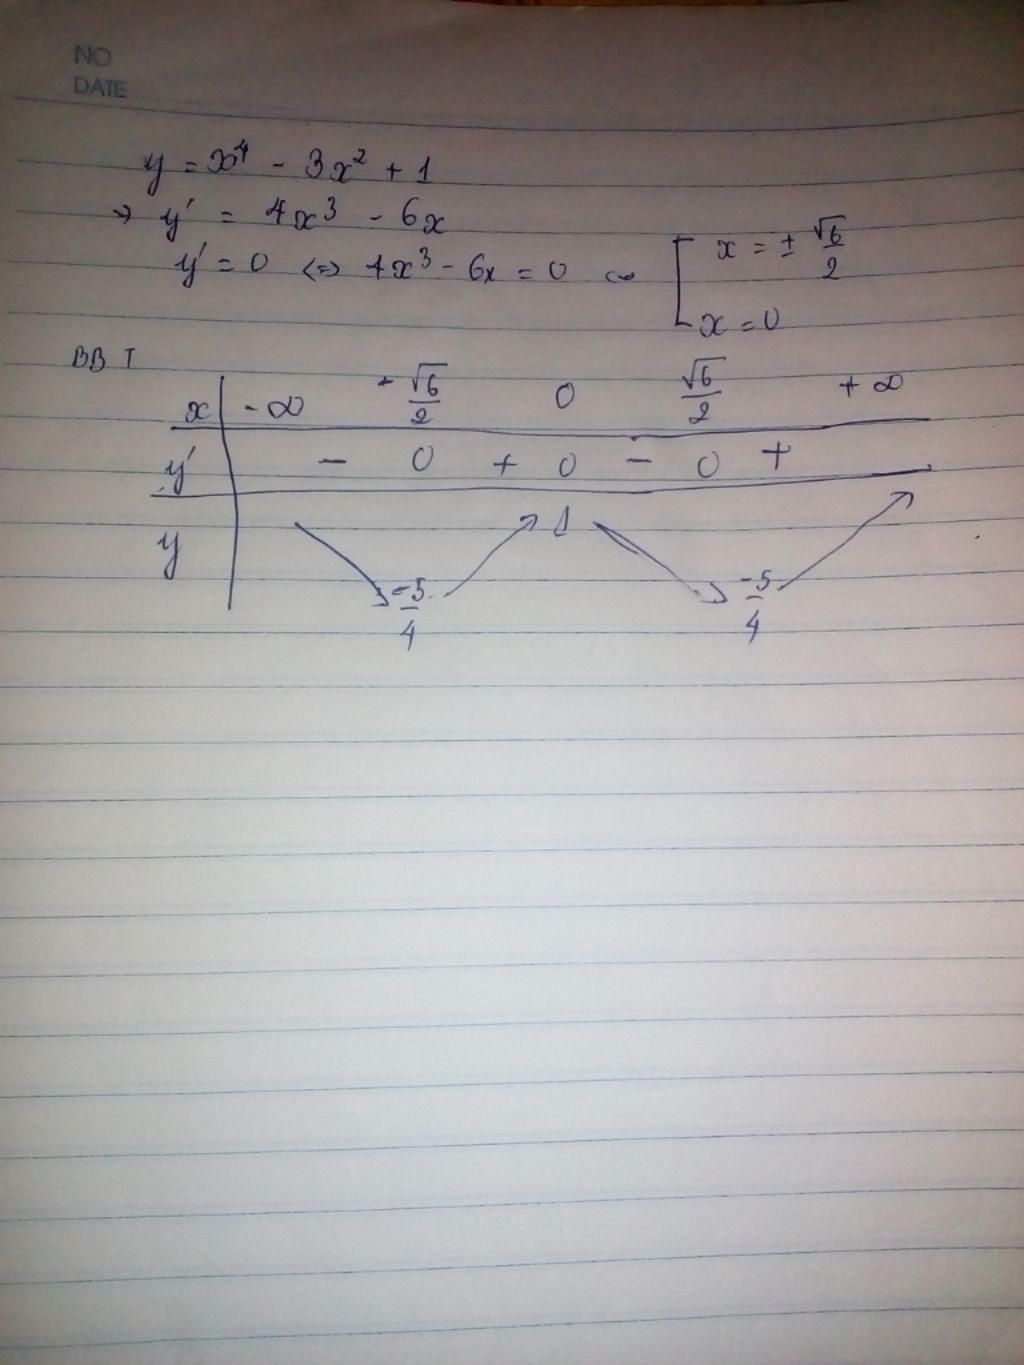 NO
DATE
y = x⁴ - 3x² + 1
⇒ y' = 4x³ - 6x
y' = 0 ⇔ 4x³ - 6x = 0 ⇔ [ x = ± √6/2
x = 0
BBT
x | -∞ -√6/2 0 √6/2 +∞
y' | - 0 + 0 - 0 +
y | ↘ -5/4 ↗ 1 ↘ -5/4 ↗